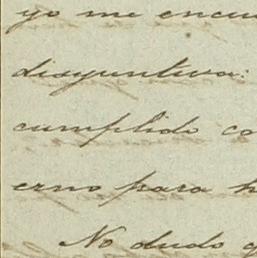 yo me encu
disyuntiva:
cumplido co
erno para h
No dudo q